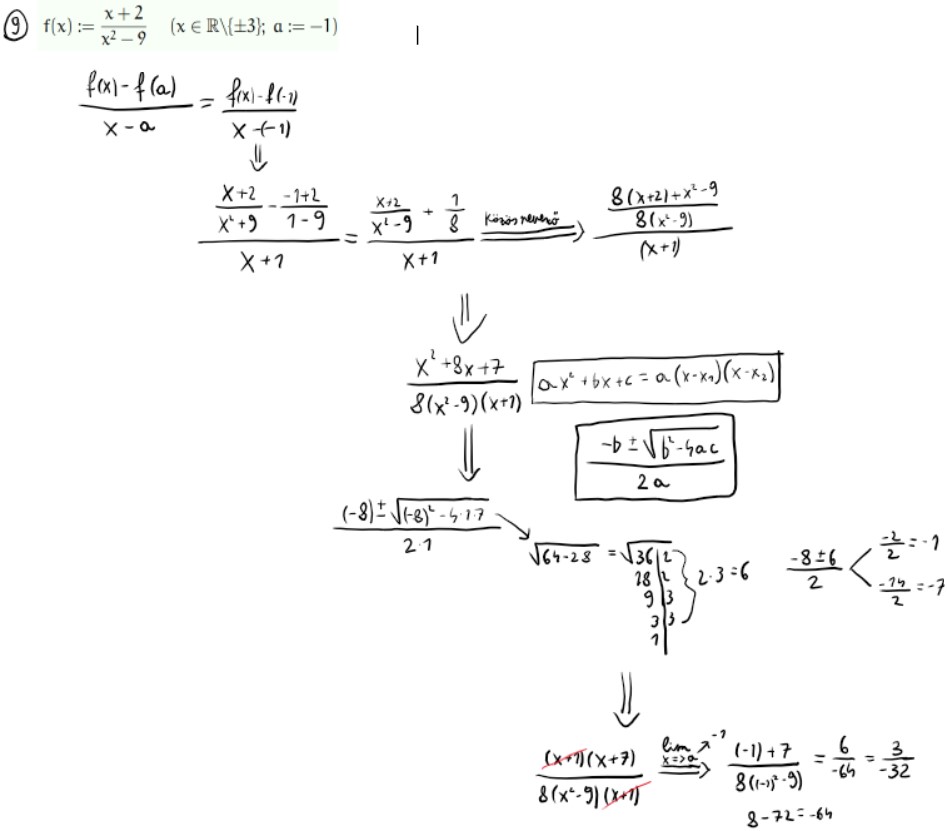 ⑨ f(x) := (x + 2)/(x² − 9) (x ∈ ℝ\{±3}; a := −1)
(f(x) - f(a))/(x - a) = (f(x) - f(-1))/(x - (-1))
⇓
((x+2)/(x²+9) - (-1+2)/(1-9))/(x+1) = ((x+2)/(x²-9) + 1/8)/(x+1) közös nevező ⇒ ((8(x+2)+x²-9)/(8(x²-9)))/(x+1)
⇓
(x²+8x+7)/(8(x²-9)(x+1)) ax²+bx+c = a(x-x₁)(x-x₂)
⇓ (-b ± √(b²-4ac))/(2a)
((-8) ± √((-8)² - 4·1·7))/(2·1) → √(64-28) = √36 (-8±6)/2 < -2/2 = -1
-14/2 = -7
36|2
18|2
9|3
3|3
1|
2·3=6
⇓
((x+1)(x+7))/(8(x²-9)(x+1)) lim x=>a ↗ -1 ⇒ ((-1)+7)/(8((-1)²-9)) = 6/-64 = 3/-32
8-72=-64